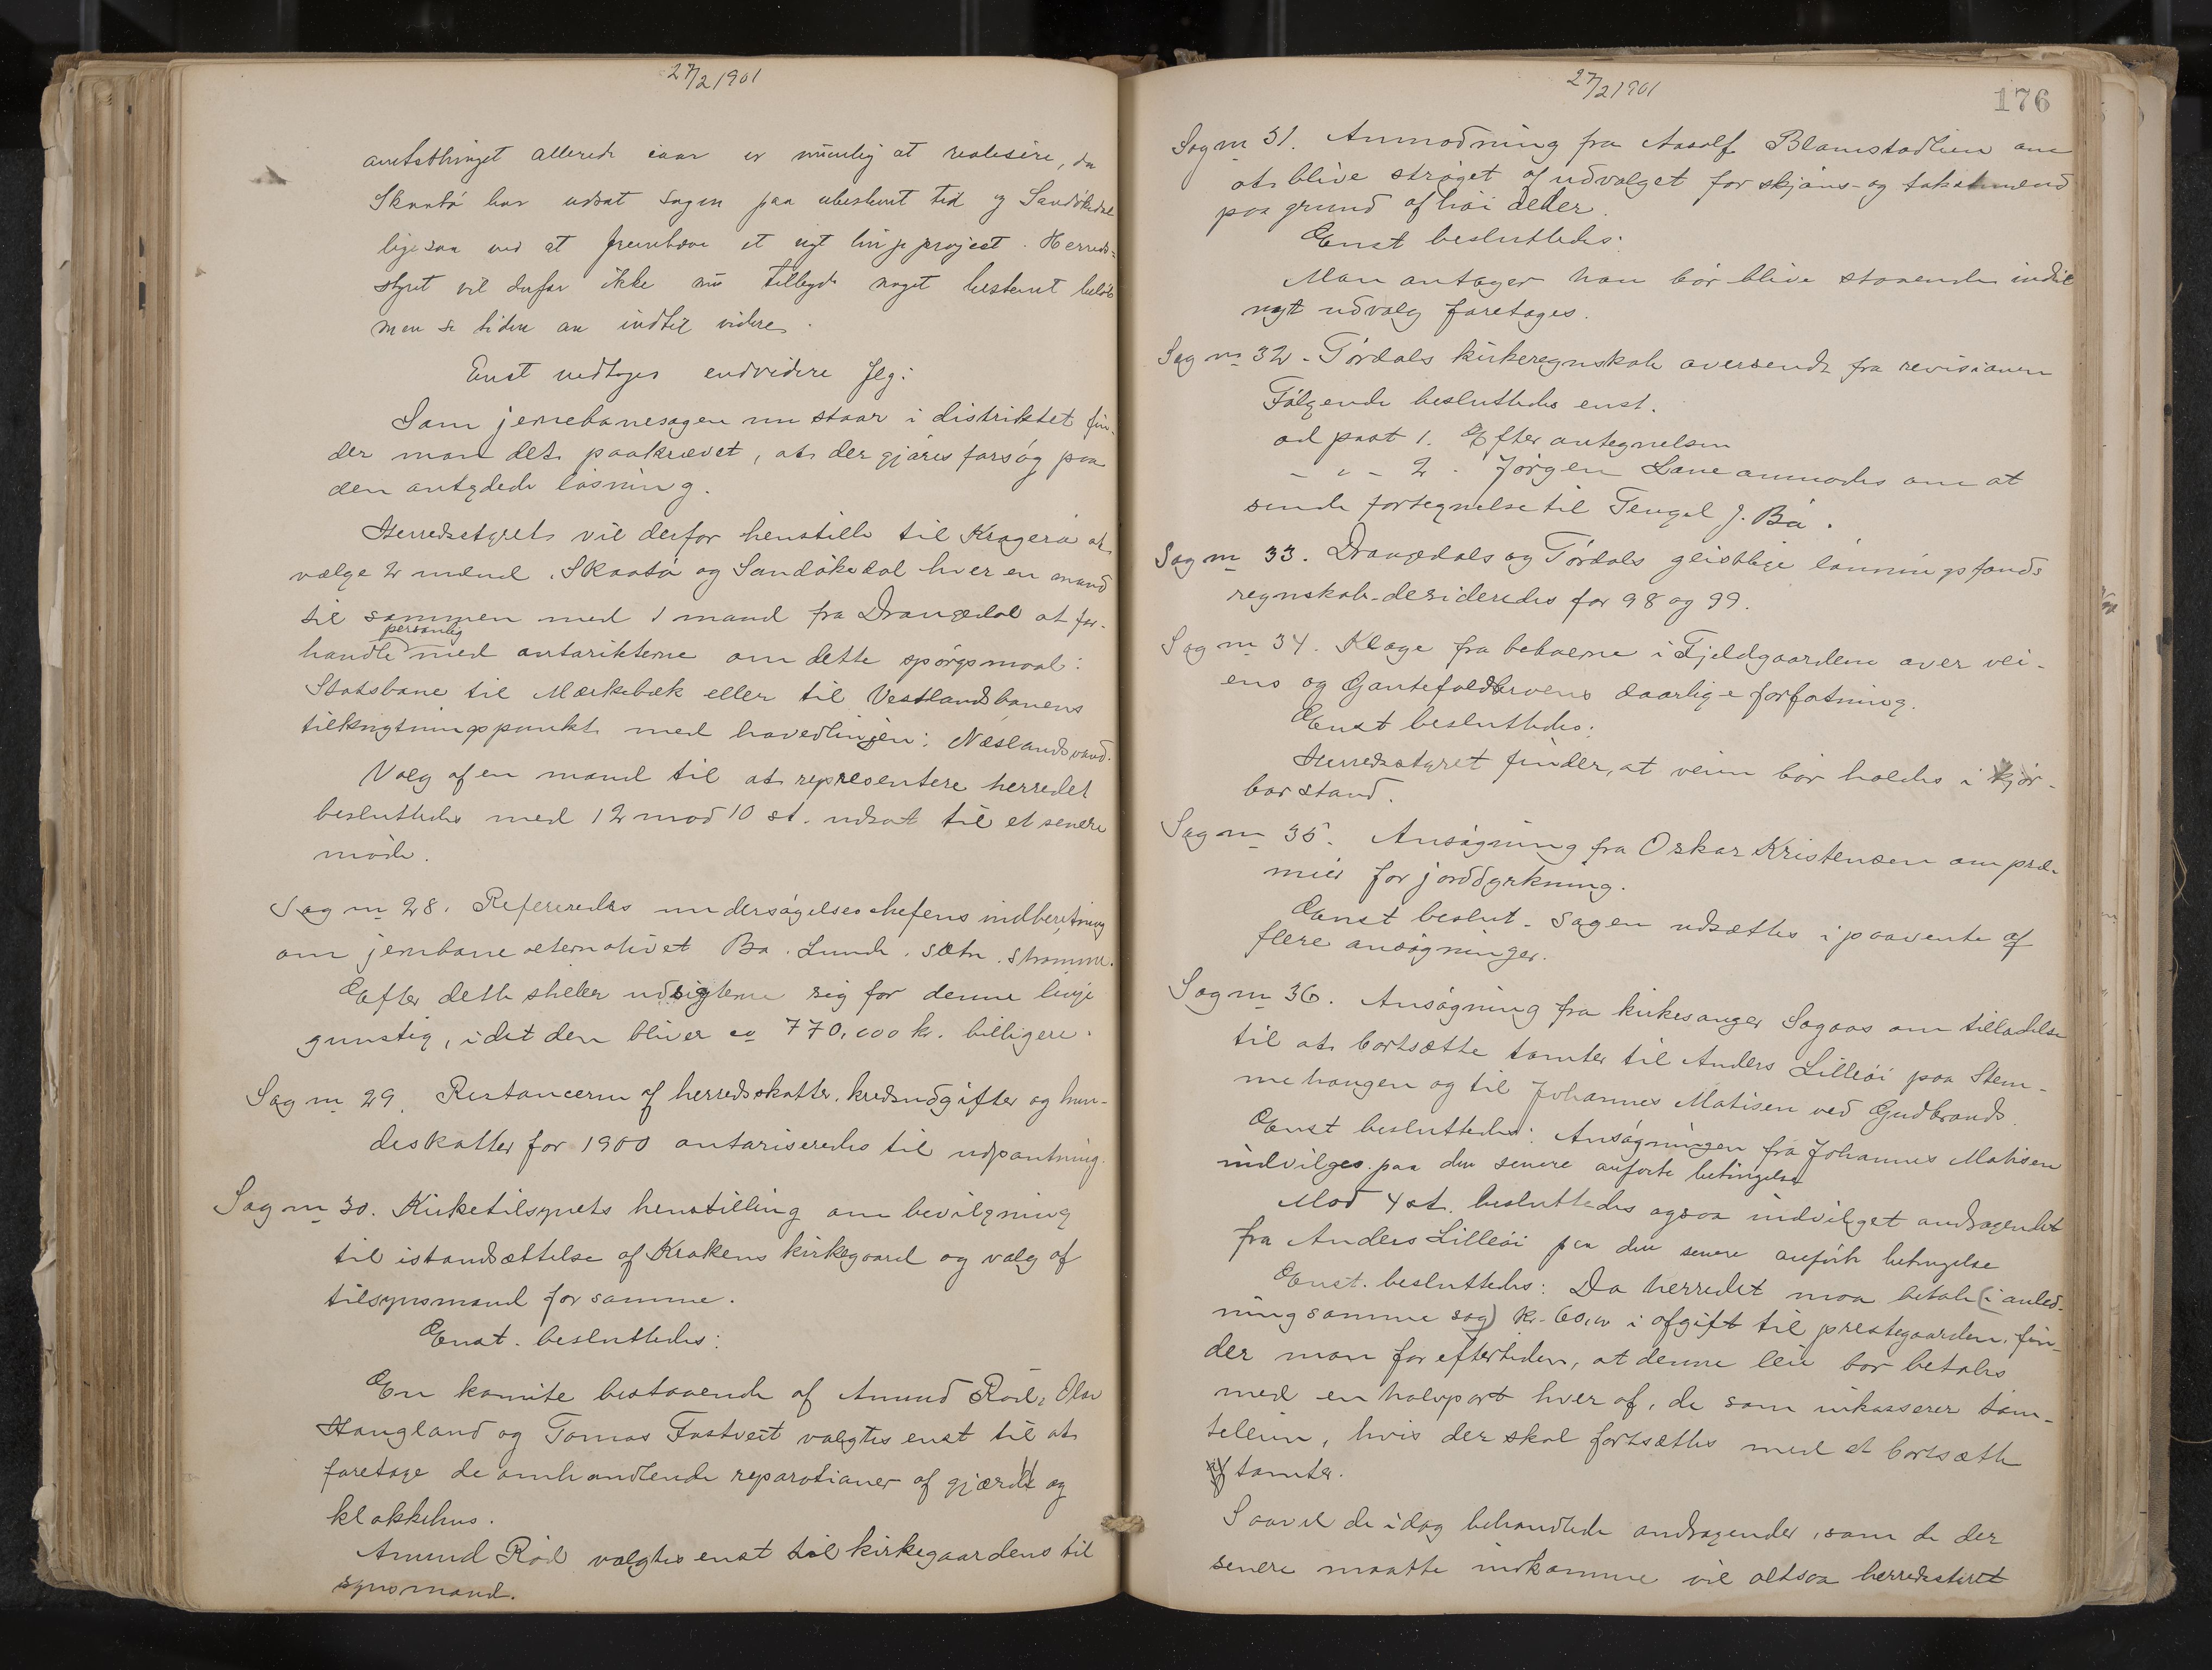 27/2 1901
amtsthinget allerede iaar er umulig at realisere, da
Skaatø har udsat sagen paa ubestemt tid og Sandøkedal
ligesaa ved at fremhæve et nyt linjeproject. Herreds=
styret vil derfor ikke nu tillægde noget bestemt beløb
men se tiden an indtil videre.
Enst vedtoges endvidere flg:
Som jernebanesagen nu staar i distriktet fin-
der man det paakrævet, at der gjøres forsøg paa
den antydede løsning.
Herredsstyret vil derfor henstille til Kragerø at
vælge 2 mænd, Skaatø og Sandøkedal hver en mand
til sammen med 1 mand fra Drangedal at for-
personlig
handle med autoriteterne om dette spørgsmaal:
Statsbane til Merkebæk eller til Vestlandsbanens
tilknytningspunkt med hovedlinjen: Neslandsvand.
Valg af en mand til at representere herredet
besluttedes med 12 mod 10 st. udsat til et senere
møde.
Sag no 28. Refereredes undersøgelseschefens indberetning
om jernbanealternativet Bø. Lunde. Sætre. Stromme.
Efter dette stiller udsigterne sig for denne linje
gunstig, idet den bliver ca 770,000 kr. billigere.
Sag no 29. Restancerne af herredsskatter, kredsudgifter og hun-
deskatter for 1900 autoriseredes til udpantning.
Sag no 30. Kirketilsynets henstilling om bevilgning
til istandsættelse af Krokens kirkegaard og valg af
tilsynsmand for samme.
Enst. besluttedes:
En komite bestaaende af Amund Rød, Olav
Haugland og Tomas Tostveit valgtes enst til at
foretage de omhandlende reparationer af gjærde og
klokkehus.
Amund Rød valgtes enst til kirkegaardens til
synsmand.
27/2 1901
176
Sag no 31. Anmodning fra Aasolf Blamstadlien om
at blive strøget af udvalget for skjøns- og takstmænd
paa grund af høi alder.
Enst besluttedes:
Man antager han bør blive staaende indtil
nyt udvalg foretages.
Sag no 32. Tørdals kirkeregnskab oversendt fra revisionen
Følgende besluttedes enst.
ad post 1. Efter antegnelsen
- " - 2. Jørgen Lane anmodes om at
sende fortegnelse til Tengel J. Bø.
Sag no 33. Drangedals og Tørdals geistlige lønningsfonds
regnskab desideredes for 98 og 99.
Sag no 34. Klage fra beboerne i Fjeldgaardene over vei-
ens og Gautefaldbroens daarlige forfatning.
Enst besluttedes:
Herredsstyret finder, at veien bør holdes i kjør-
bar stand.
Sag no 35. Ansøgning fra Oskar Kristensen om præ-
mier for jorddyrkning.
Enst beslut. Sagen udsættes i paavente af
flere ansøgninger.
Sag no 36. Ansøgning fra kirkesanger Sogaas om tilladelse
til at bortsætte tomter til Anders Lilleøi paa Stem-
mehaugen og til Johannes Matisen ved Gudbrands.
Enst besluttedes: Ansøgningen fra Johannes Matisen
indvilges paa den senere anførte betingelse
Mod 4 st. besluttedes ogsaa indvilget andragendet
fra Anders Lilleøi paa den senere anførte betingelse
Enst. besluttedes: Da herredet maa betale (i anled-
ning samme sag) kr. 60,00 i afgift til prestegaarden, fin-
der man for eftertiden, at denne leie bør betales
med en halvpart hver af, de som inkasserer tom-
teleien, hvis der skal fortsættes med at bortsætte
tomter.
Saavel de idag behandlede andragender, som de der
senere maatte indkomme vil altsaa herredsstyret